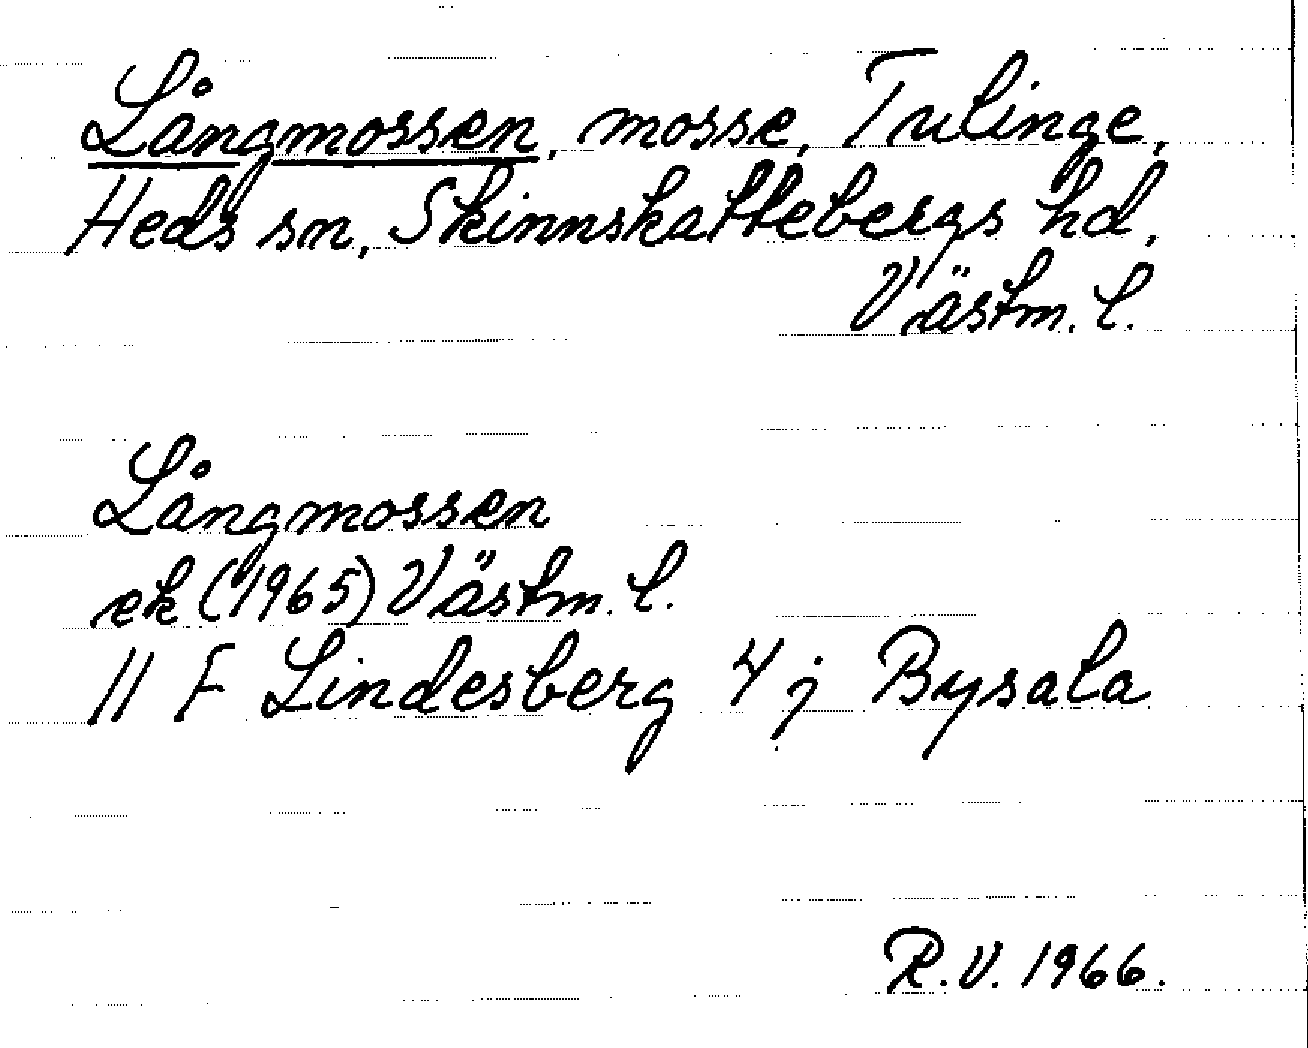 Långmossen, mosse, Tulinge,
Heds sn, Skinnskattebergs hd,
Västm. l.
Långmossen
ek (1965) Västm. l.
11 F Lindesberg 4 j Bysala
R.V. 1966.